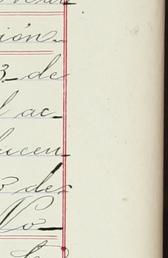 ión_
3_de
l ac_
lucen_
3 de_
No_